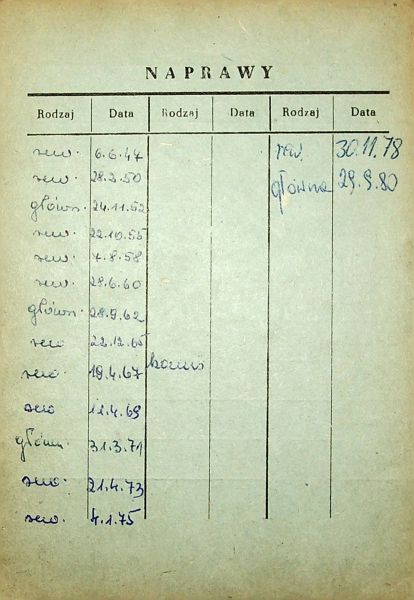 NAPRAWY
Rodzaj Data Rodzaj Data Rodzaj Data
rew. 6.6.47 rew. 30.11.78
rew. 28.2.50 główna 29.9.80
główn. 24.11.52
rew. 22.10.55
rew. 7.8.58
rew. 28.6.60
główn. 28.9.62
rew 22.12.65
rew 19.4.67
rew 11.4.69
główn. 31.3.71
rew. 21.4.73
rew. 4.1.75